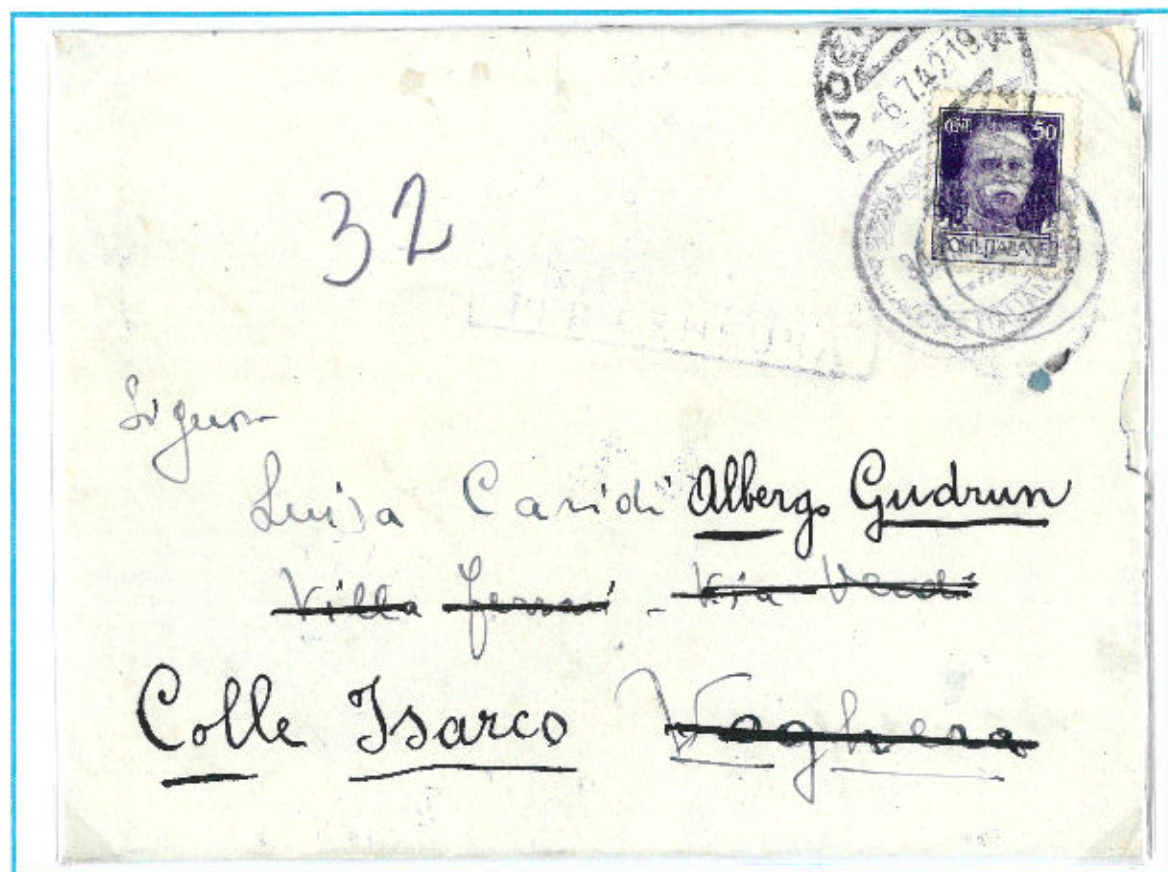 VOGH
-6.7.42 19
CENT 50
POSTE ITALIANE
32
PER CENSURA
Signora
Luisa Caridi Albergo Gudrun
Villa - Via Verdi
Colle Isarco Voghera